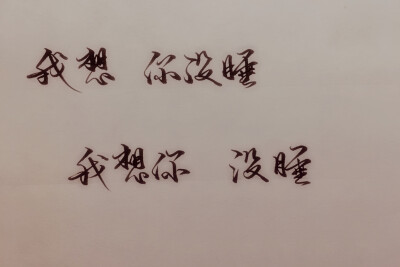 我想 你没睡
我想你 没睡